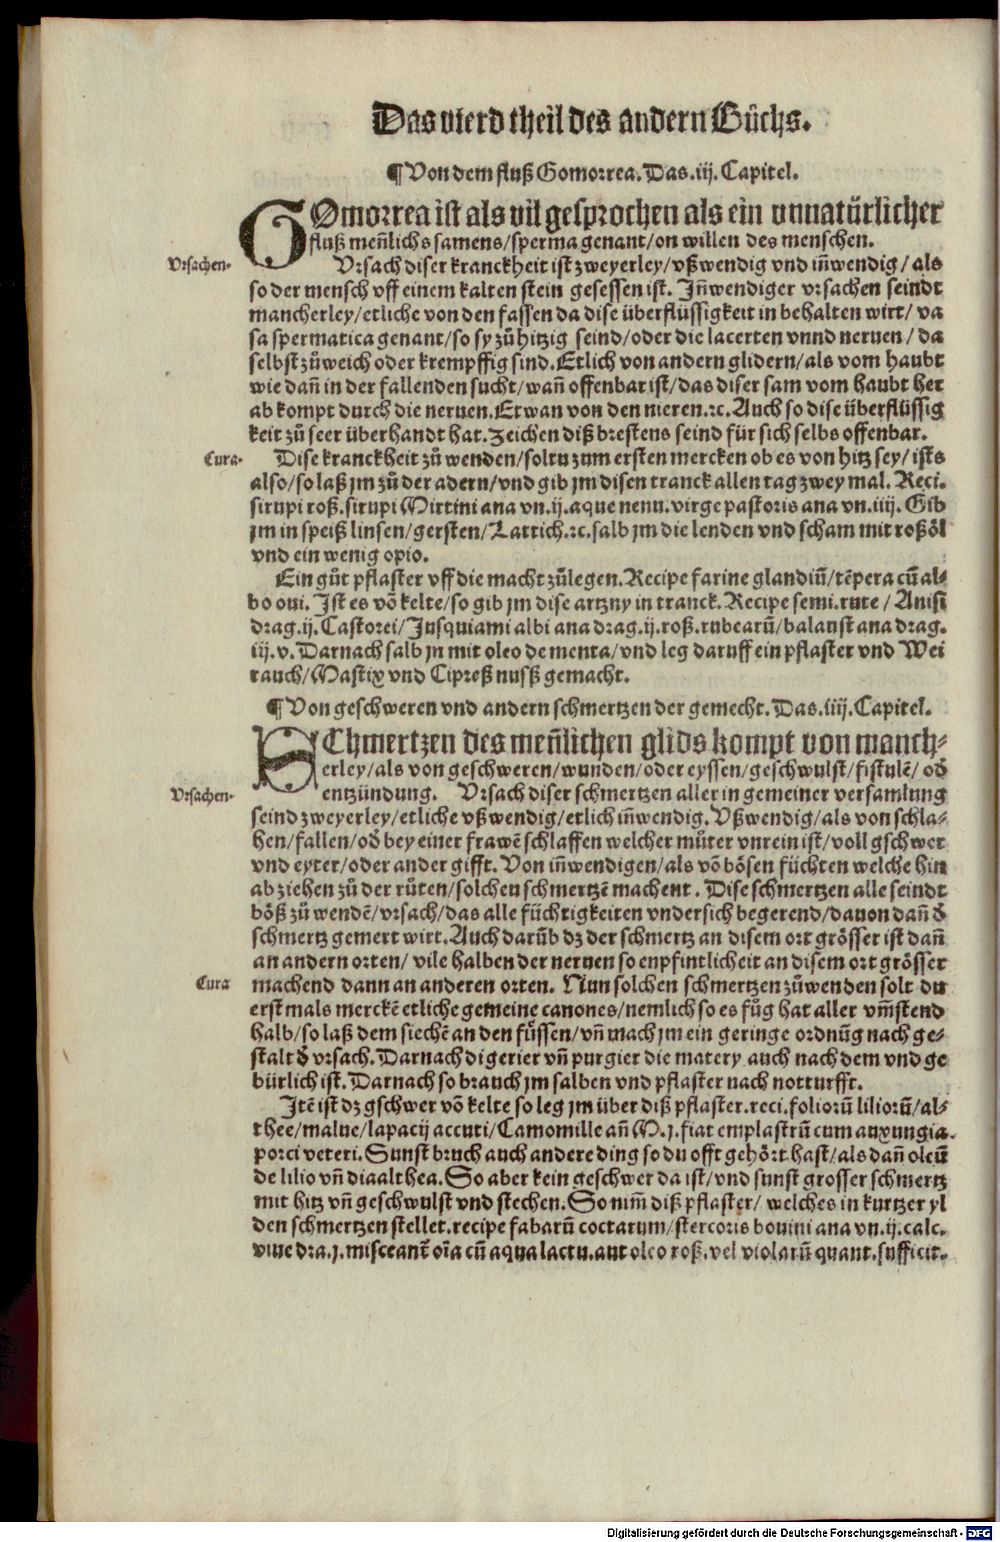 Das vierd theil des andern Bůchs.
¶ Von dem fluß Gomorrea. Das .iij. Capitel.
GOmorrea ist als vil gesprochen als ein vnnatürlicher
fluß meñlichs samens/sperma genant/on willen des menschen.
Vrsachen.
Vrsach diser kranckheit ist zweyerley/vßwendig vnd iñwendig/als
so der mensch vff einem kalten stein gesessen ist. Iñwendiger vrsachen seindt
mancherley/etliche von den fassen da dise überflüssigkeit in behalten wirt/va
sa spermatica genant/so sy zů hitzig seind/oder die lacerten vnnd neruen/da
selbst zů weich oder krempffig sind. Etlich von andern glidern/als vom haubt
wie dañ in der fallenden sucht/wañ offenbar ist/das diser sam vom haubt her
ab kompt durch die neruen. Etwan von den nieren.ꝛc. Auch so dise überflüssig
keit zů seer überhandt hat. Zeichen diß brestens seind für sich selbs offenbar.
Cura.
Dise kranckheit zů wenden/soltu zum ersten mercken ob es von hitz sey/ists
also/so laß jm zů der adern/vnd gib jm disen tranck allen tag zwey mal. Reci.
sirupi roß. sirupi Mirtini ana vn.ij.aque nenu.virge pastoris ana vn.iiij. Gib
jm in speiß linsen/gersten/Lattich.ꝛc.salb jm die lenden vnd scham mit roßöl
vnd ein wenig opio.
Ein gůt pflaster vff die macht zůlegen. Recipe farine glandiũ/tẽpera cũ al⸗
bo oui. Ist es võ kelte/so gib jm dise artzny in tranck. Recipe semi.rute/Anisi
drag.ij. Castorei/Iusquiami albi ana drag.ij.roß.rubearũ/balaust ana drag.
iij.v. Darnach salb jn mit oleo de menta/vnd leg daruff ein pflaster vnd Wei
rauch/Mastix vnd Cipreß nusß gemacht.
¶ Von geschweren vnd andern schmertzen der gemecht. Das .iiij. Capitel.
SChmertzen des meñlichen glids kompt von manch⸗
erley/als von geschweren/wunden/oder eyssen/geschwulst/fistulẽ/od̓
Vrsachen.
entzündung. Vrsach diser schmertzen aller in gemeiner versamlung
seind zweyerley/etliche vßwendig/etlich iñwendig. Vßwendig/als von schla⸗
hen/fallen/od̓ bey einer frawẽ schlaffen welcher můter vnrein ist/voll gschwer
vnd eyter/oder ander gifft. Von iñwendigen/als võ bösen füchten welche hin
ab ziehen zů der růten/solchen schmertzẽ machent. Dise schmertzen alle seindt
böß zů wendẽ/vrsach/das alle füchtigkeiten vndersich begerend/dauon dañ d̓
schmertz gemert wirt. Auch darũb dz der schmertz an disem ort grösser ist dañ
an andern orten/vile halben der neruen so enpfintlicheit an disem ort grösser
Cura
machend dann an anderen orten. Nun solchen schmertzen zůwenden solt du
erst mals merckẽ etliche gemeine canones/nemlich so es fůg hat aller vm̃stend
halb/so laß dem siechẽ an den fůssen/vñ mach jm ein geringe ordnũg nach ge⸗
stalt d̓ vrsach. Darnach digerier vñ purgier die matery auch nach dem vnd ge
bürlich ist. Darnach so brauch jm salben vnd pflaster nach notturfft.
Itẽ ist dz gschwer võ kelte so leg jm über diß pflaster.reci.foliorũ liliorũ/al⸗
thee/malue/lapacij accuti/Camomille añ M.j.fiat emplastrũ cum auxungia
porci veteri. Sunst bruch auch andere ding so du offt gehört hast/als dañ oleũ
de lilio vñ diaalthea. So aber kein geschwer da ist/vnd sunst grosser schmertz
mit hitz vñ geschwulst vnd stechen. So nim̃ diß pflaster/welches in kurtzer yl
den schmertzen stellet.recipe fabarũ coctarum/stercoris bouini ana vn.ij.calc.
viue dra.j.misceant̃ oĩa cũ aqua lactu.aut oleo roß.vel violarũ quant.sufficit.
Digitalisierung gefördert durch die Deutsche Forschungsgemeinschaft - DFG